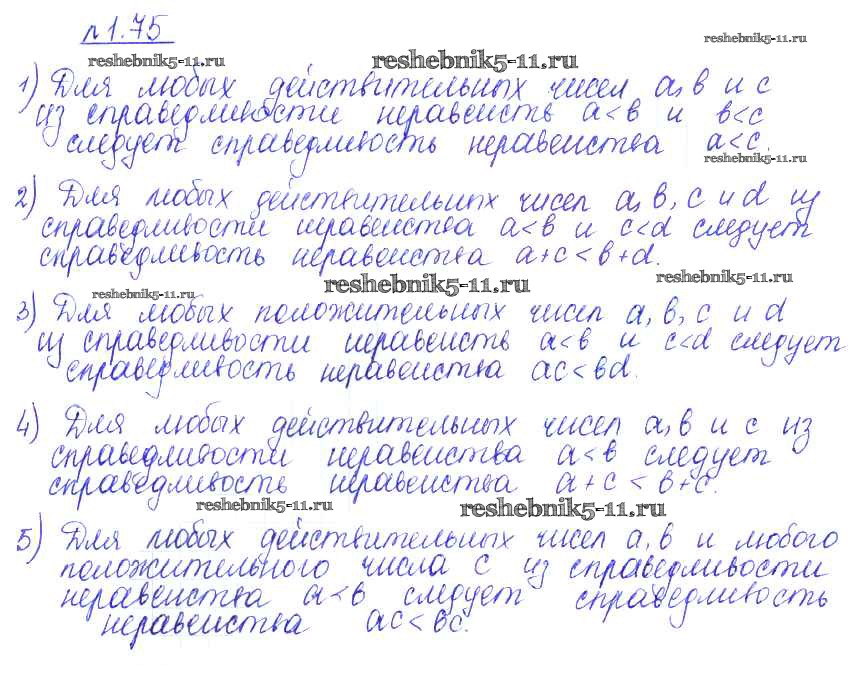 №1.75
reshebnik5-11.ru
reshebnik5-11.ru reshebnik5-11.ru
1) Для любых действительных чисел a, b и c
из справедливости неравенств a<b и b<c
следует справедливость неравенства a<c.
reshebnik5-11.ru
2) Для любых действительных чисел a, b, c и d из
справедливости неравенства a<b и c<d следует
справедливость неравенства a+c<b+d.
reshebnik5-11.ru reshebnik5-11.ru
reshebnik5-11.ru
3) Для любых положительных чисел a, b, c и d
из справедливости неравенств a<b и c<d следует
справедливость неравенства ac<bd.
4) Для любых действительных чисел a, b и c из
справедливости неравенства a<b следует
справедливость неравенства a+c<b+c.
reshebnik5-11.ru reshebnik5-11.ru
5) Для любых действительных чисел a, b и любого
положительного числа c из справедливости
неравенства a<b следует справедливость
неравенства ac<bc.